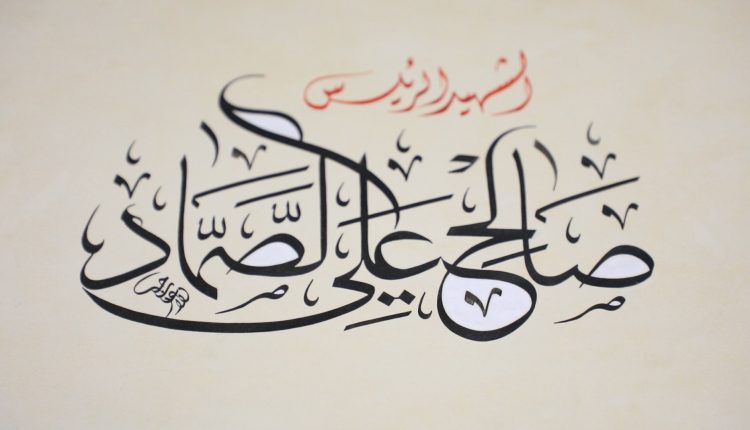 الشهيد الرئيس
صالح علي الصَّمَّاد